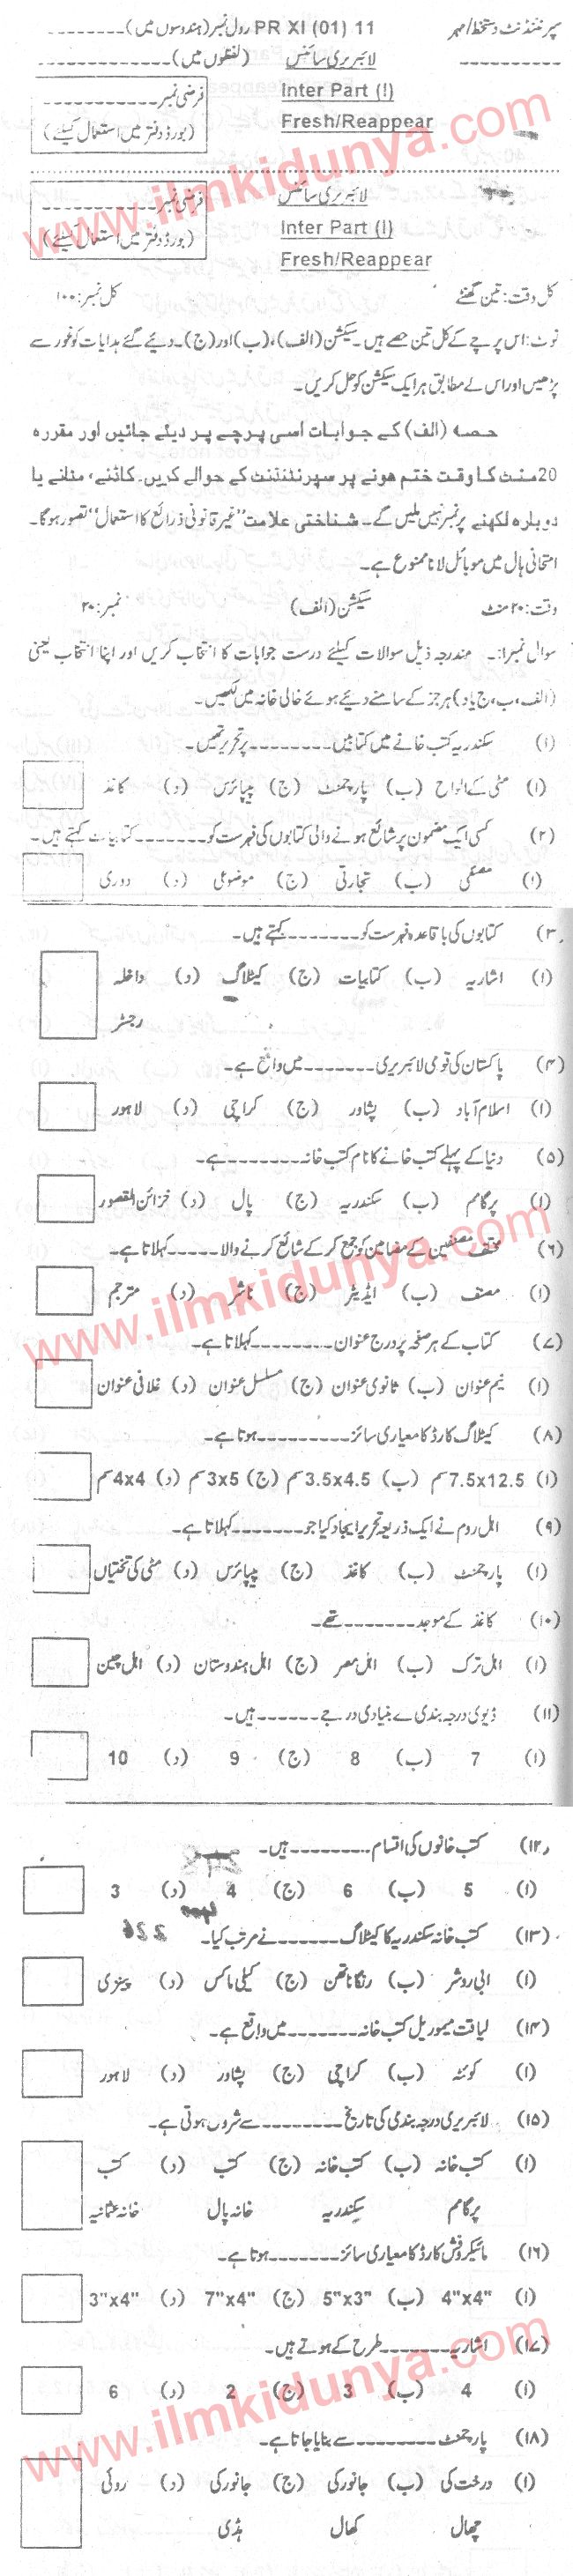 سپرنٹنڈنٹ دستخط/مہر PR XI (01) 11 رول نمبر (ہندسوں میں)ـــــــــ
ـــــــــــ لائبریری سائنس (لفظوں میں)ـــــــــــ
فرضی نمبرـــــــــــ Inter Part (I)
(بورڈ دفتر میں استعمال کیلئے) Fresh/Reappear
لائبریری سائنس
فرضی نمبرـــــــــــ Inter Part (I)
(بورڈ دفتر میں استعمال کیلئے)
Fresh/Reappear
کل وقت: تین گھنٹے کل نمبر: ۱۰۰
نوٹ: اس پرچے کے کل تین حصے ہیں۔ سیکشن (الف)، (ب) اور (ج)۔ دیئے گئے ہدایات کو غور سے
پڑھیں اور اس کے مطابق ہر ایک سیکشن کو حل کریں۔
حصہ (الف) کے جوابات اسی پرچے پر دیئے جائیں اور مقررہ
20 منٹ کا وقت ختم ہونے پر سپرنٹنڈنٹ کے حوالے کریں۔ کاٹنے، مٹانے یا
دوبارہ لکھنے پر نمبر نہیں ملیں گے۔ شناختی علامت "غیر قانونی ذرائع کا استعمال" تصور ہوگا۔
امتحانی ہال میں موبائل لانا ممنوع ہے۔
وقت: ۲۰ منٹ سیکشن (الف) نمبر: ۲۰
سوال نمبر۱:۔ مندرجہ ذیل سوالات کیلئے درست جوابات کا انتخاب کریں اور اپنا انتخاب یعنی
(الف، ب، ج یا د) ہر جز کے سامنے دیئے ہوئے خالی خانہ میں لکھیں۔
(۱) سکندریہ کتب خانے میں کتابیں ـــــــــ پر تحریر تھیں۔
(ا) مٹی کے الواح (ب) پارچمنٹ (ج) پیپائرس (د) کاغذ
(۲) کسی ایک مضمون پر شائع ہونے والی کتابوں کی فہرست کو ـــــــــ کتابیات کہتے ہیں۔
(ا) مصنفی (ب) تجارتی (ج) موضوعی (د) دوری
(۳) کتابوں کی باقاعدہ فہرست کو ـــــــــ کہتے ہیں۔
(ا) اشاریہ (ب) کتابیات (ج) کیٹلاگ (د) داخلہ
رجسٹر
(۴) پاکستان کی قومی لائبریری ـــــــــ میں واقع ہے۔
(ا) اسلام آباد (ب) پشاور (ج) کراچی (د) لاہور
(۵) دنیا کے پہلے کتب خانے کا نام کتب خانہ ـــــــــ ہے۔
(ا) پرگامم (ب) سکندریہ (ج) پال (د) خزائن القصور
(۶) مختلف مصنفین کے مضامین کو جمع کر کے شائع کرنے والا ـــــــــ کہلاتا ہے۔
(ا) مصنف (ب) ایڈیٹر (ج) ناشر (د) مترجم
(۷) کتاب کے ہر صفحہ پر درج عنوان ـــــــــ کہلاتا ہے۔
(ا) نیم عنوان (ب) ثانوی عنوان (ج) مسلسل عنوان (د) غلافی عنوان
(۸) کیٹلاگ کارڈ کا معیاری سائز ـــــــــ ہوتا ہے۔
(ا) 7.5x12.5 سم (ب) 3.5x4.5 سم (ج) 3x5 سم (د) 4x4 سم
(۹) اہل روم نے ایک ذریعہ تحریر ایجاد کیا جو ـــــــــ کہلاتا ہے۔
(ا) پارچمنٹ (ب) کاغذ (ج) پیپائرس (د) مٹی کی تختیاں
(۱۰) کاغذ کے موجد ـــــــــ تھے۔
(ا) اہل ترک (ب) اہل مصر (ج) اہل ہندوستان (د) اہل چین
(۱۱) ڈیوی درجہ بندی ے بنیادی درجے ـــــــــ ہیں۔
(ا) 7 (ب) 8 (ج) 9 (د) 10
(۱۲) کتب خانوں کی اقسام ـــــــــ ہیں۔
(ا) 5 (ب) 6 (ج) 4 (د) 3
(۱۳) کتب خانہ سکندریہ کا کیٹلاگ ـــــــــ نے مرتب کیا۔
(ا) ابی روشر (ب) رنگاناتھن (ج) کیلی ماکس (د) پینزی
(۱۴) لیاقت میموریل کتب خانہ ـــــــــ میں واقع ہے۔
(ا) کوئٹہ (ب) کراچی (ج) پشاور (د) لاہور
(۱۵) لائبریری درجہ بندی کی تاریخ ـــــــــ سے شروں ہوتی ہے۔
(ا) کتب خانہ (ب) کتب خانہ (ج) کتب (د) کتب
پرگامم سکندریہ خانہ پال خانہ عثمانیہ
(۱۶) مائیکروفش کارڈ کا معیاری سائز ـــــــــ ہوتا ہے۔
(ا) 4"x4" (ب) 5"x3" (ج) 7"x4" (د) 3"x4"
(۱۷) اشاریہ ـــــــــ طرح کے ہوتے ہیں۔
(ا) 4 (ب) 3 (ج) 2 (د) 6
(۱۸) پارچمنٹ ـــــــــ سے بنایا جاتا ہے۔
(ا) درخت کی (ب) جانور کی (ج) جانور کی (د) روئی
چھال کھال ہڈی
www.ilmkidunya.com
www.ilmkidunya.com
www.ilmkidunya.com